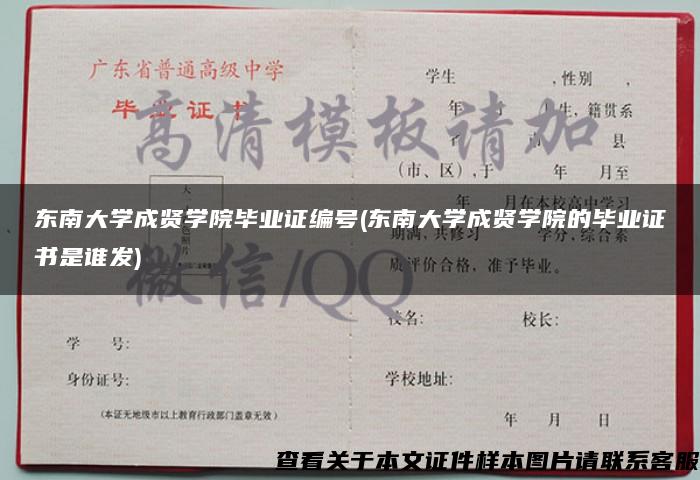 广东省普通高级中学
毕业证书
高清模板请加
微信/QQ
学生 ,性别 ,
年 月 生,籍贯系
省 市 县
(市、区),于 年 月至
年 月在本校高中学习
期满,共修习 学分,综合素
质评价合格,准予毕业。
东南大学成贤学院毕业证编号(东南大学成贤学院的毕业证
书是谁发)
校名: 校长:
学 号:
身份证号:
学校地址:
(本证无地级市以上教育行政部门盖章无效)
年 月 日
查看关于本文证件样本图片请联系客服